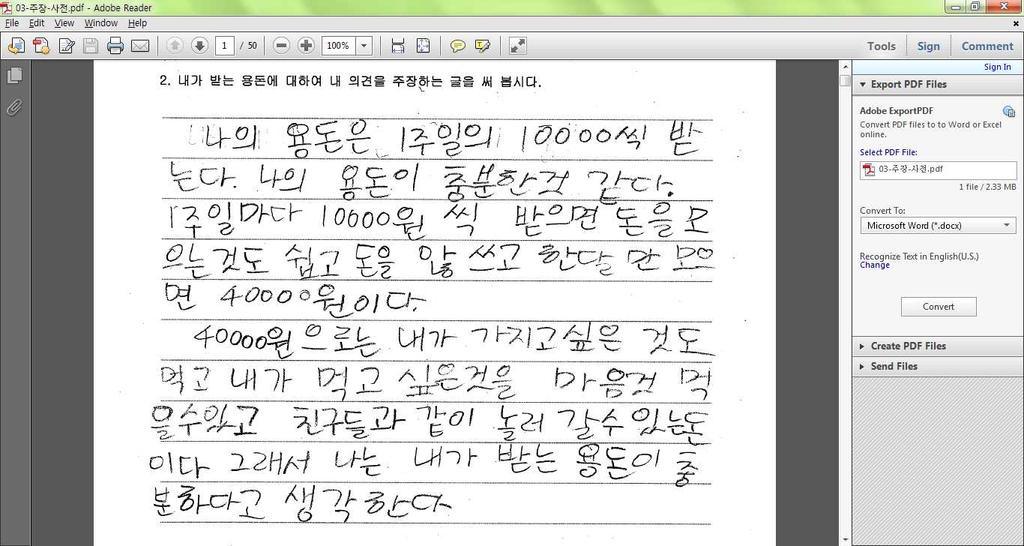 03-주장-사전.pdf - Adobe Reader
File Edit View Window Help
1 / 50 100% Tools Sign Comment
Sign In
2. 내가 받는 용돈에 대하여 내 의견을 주장하는 글을 써 봅시다.
나의 용돈은 1주일의 10000씩 받
는다. 나의 용돈이 충분한것 같다.
1주일마다 10000원 씩 받으면 돈을 모
으는것도 쉽고 돈을 않 쓰고 한달 만 모으
면 40000원이다.
40000원으로는 내가 가지고싶은 것도
먹고 내가 먹고 싶은것을 마음것 먹
을수있고 친구들과 같이 놀러 갈수있는돈
이다 그래서 나는 내가 받는 용돈이 충
분하다고 생각한다
Export PDF Files
Adobe ExportPDF
Convert PDF files to to Word or Excel
online.
Select PDF File:
03-주장-사전.pdf
1 file / 2.33 MB
Convert To:
Microsoft Word (*.docx)
Recognize Text in English(U.S.)
Change
Convert
Create PDF Files
Send Files